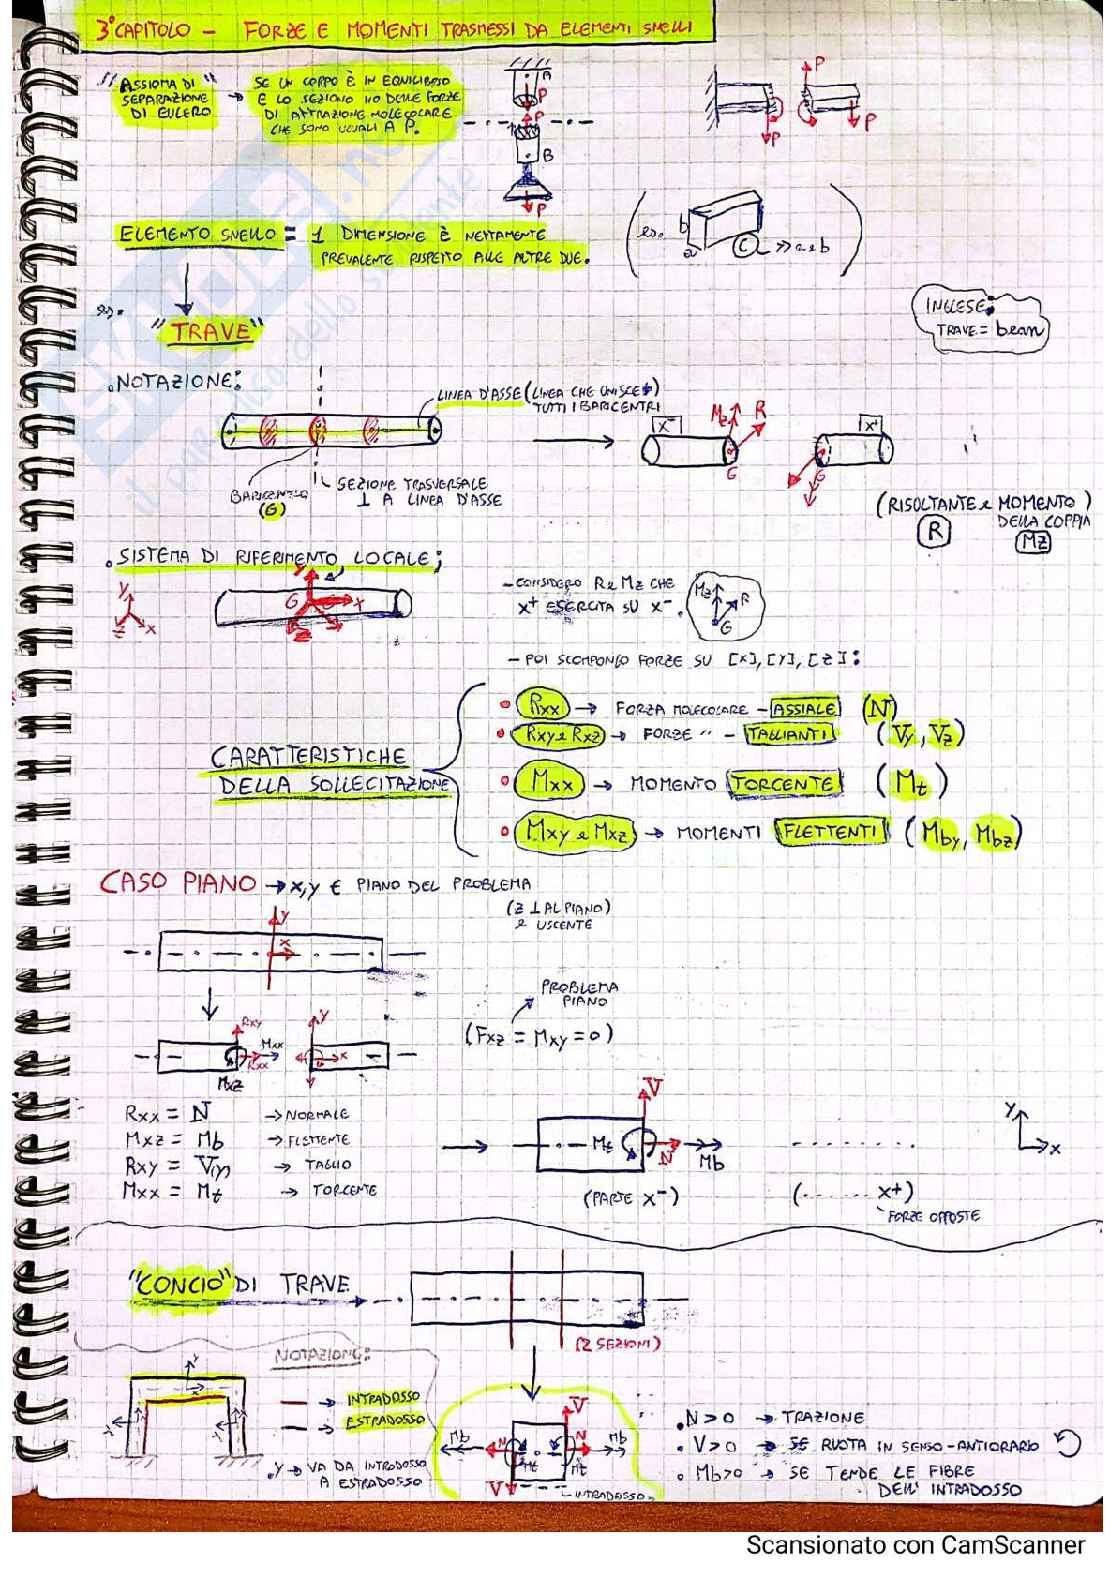 3° CAPITOLO - FORZE E MOMENTI TRASMESSI DA ELEMENTI SNELLI
"ASSIOMA DI SEPARAZIONE DI EULERO" → SE UN CORPO È IN EQUILIBRIO
E LO SEZIONO HO DELLE FORZE
DI ATTRAZIONE MOLECOLARE
CHE SONO UGUALI A P.
A
P
P
B
P
P
P
P
ELEMENTO SNELLO = 1 DIMENSIONE È NETTAMENTE
PREVALENTE RISPETTO ALLE ALTRE DUE.
(es. b a C >> a e b)
es.
"TRAVE"
INGLESE:
TRAVE = bean
. NOTAZIONE:
LINEA D'ASSE (LINEA CHE UNISCE
TUTTI I BARICENTRI
BARICENTRO
(G)
SEZIONE TRASVERSALE
⊥ A LINEA D'ASSE
X⁻
Mz
R
G
X⁺
G
(RISULTANTE e MOMENTO)
DELLA COPPIA
R
Mz
. SISTEMA DI RIFERIMENTO LOCALE:
y
x
z
y
G
x
z
- CONSIDERO R e Mz CHE
X⁺ ESERCITA SU X⁻.
Mz
R
G
- POI SCOMPONGO FORZE SU [X], [Y], [Z]:
CARATTERISTICHE
DELLA SOLLECITAZIONE
• Rxx → FORZA MOLECOLARE - ASSIALE (N)
• Rxy e Rxz → FORZE " - TAGLIANTI (Vy, Vz)
• Mxx → MOMENTO TORCENTE (Mt)
• Mxy e Mxz → MOMENTI FLETTENTI (Mby, Mbz)
CASO PIANO → x,y ∈ PIANO DEL PROBLEMA
(Z ⊥ AL PIANO)
e USCENTE
y
x
PROBLEMA
PIANO
(Fxz = Mxy = 0)
Rxy
Mxx
Rxx
Mxz
y
x
Rxx = N → NORMALE
Mxz = Mb → FLETTENTE
Rxy = V(y) → TAGLIO
Mxx = Mt → TORCENTE
V
Mt
N
Mb
(PARTE X⁻)
. . . . . . . . . .
(........ X⁺)
FORZE OPPOSTE
y
x
"CONCIO" DI TRAVE
(2 SEZIONI)
NOTAZIONI:
y
x
→ INTRADOSSO
→ ESTRADOSSO
. Y → VA DA INTRADOSSO
A ESTRADOSSO
Mb
N
V
Mt
V
N
Mb
Mt
INTRADOSSO
. N > 0 → TRAZIONE
. V > 0 → SE RUOTA IN SENSO-ANTIORARIO
. Mb > 0 → SE TENDE LE FIBRE
DELL'INTRADOSSO
Scansionato con CamScanner